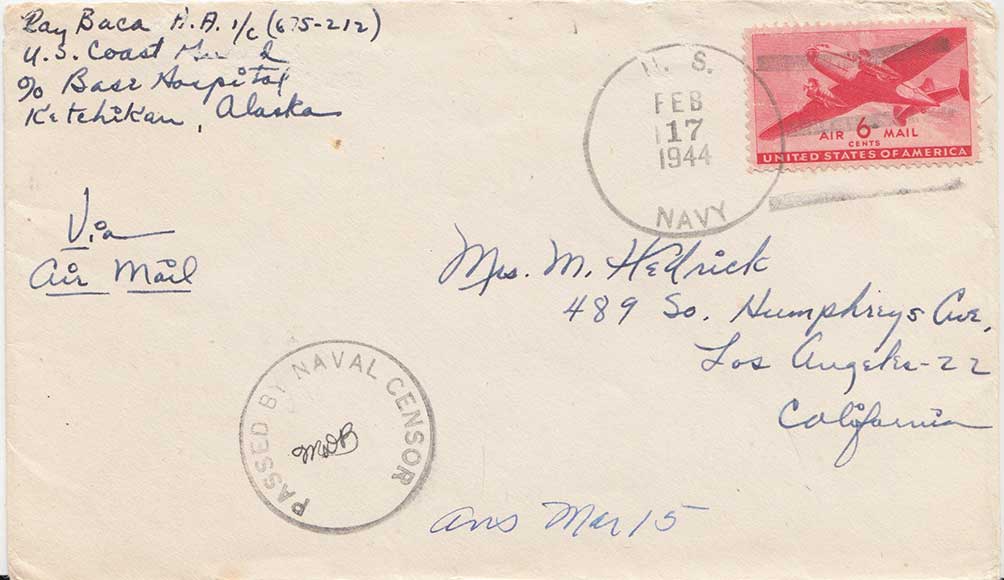 Ray Baca H.A. 1/c (675-212)
U.S. Coast
c/o Base Hospital
Ketchikan, Alaska
U. S.
FEB
17
1944
NAVY
AIR 6 MAIL
CENTS
UNITED STATES OF AMERICA
Via
Air Mail
Mrs. M. Hedrick
489 So. Humphreys Ave,
Los Angeles-22
California
PASSED BY NAVAL CENSOR
Ans Mar 15